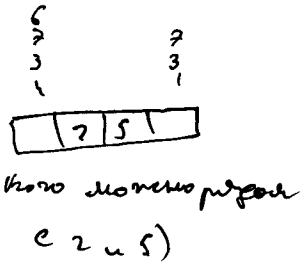 6
7 7
3 3
1 1
2 5
кого можно рядом
с 2 и 5)